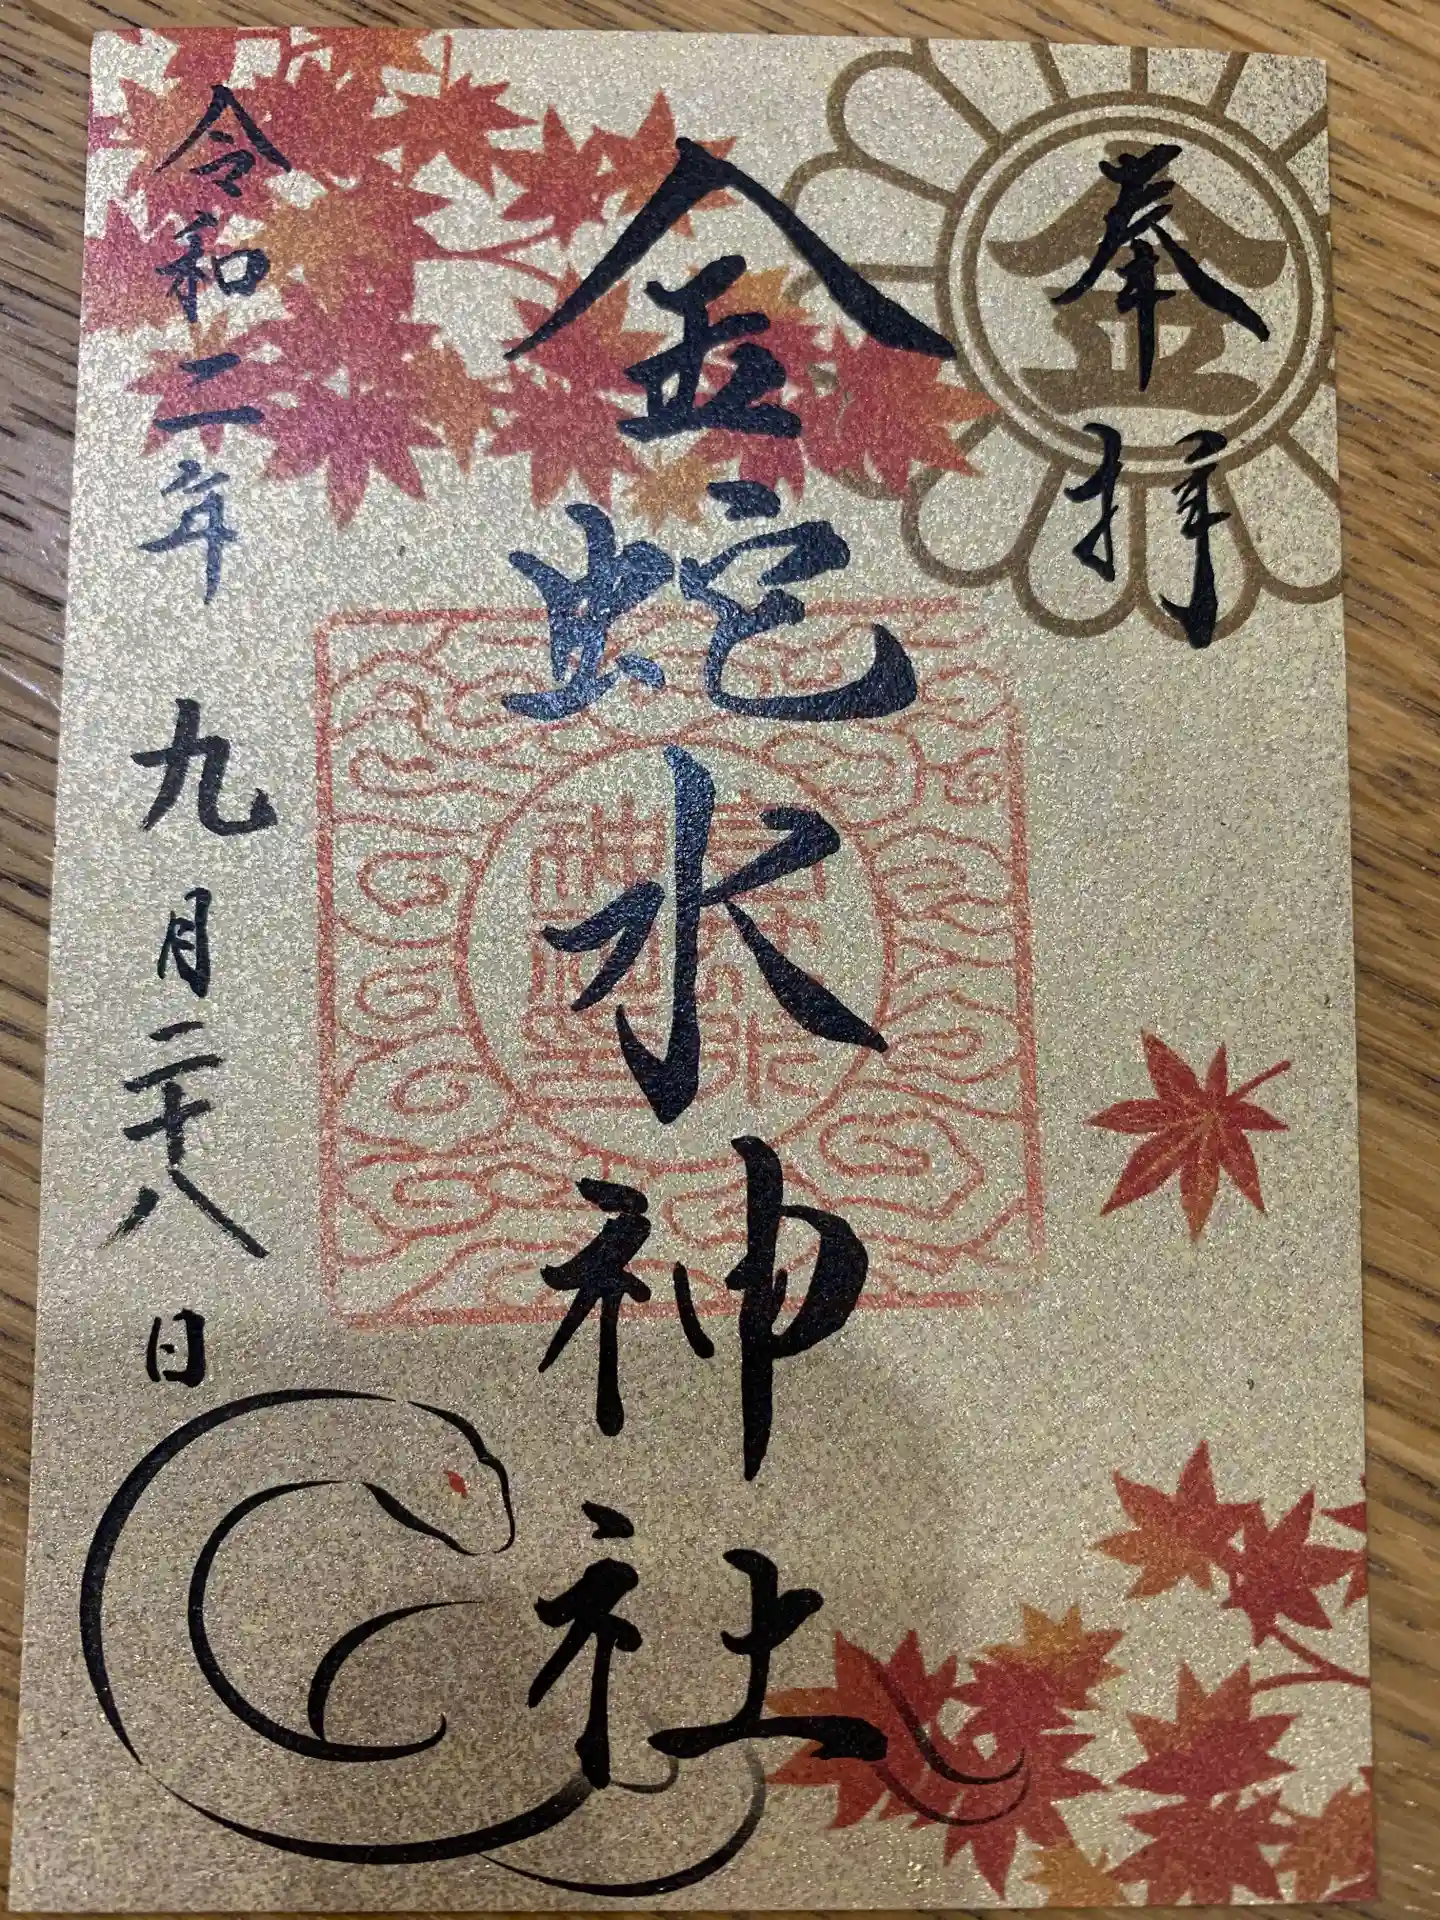 奉拝
金
金蛇水神社
令和二年九月二十八日